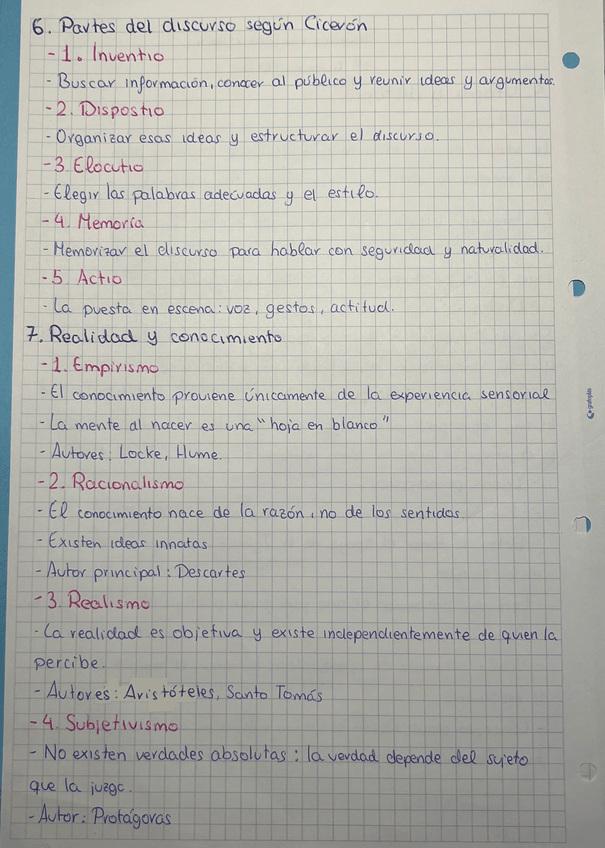 6. Partes del discurso según Cicerón
- 1. Inventio
- Buscar información, conocer al público y reunir ideas y argumentos.
- 2. Dispostio
- Organizar esas ideas y estructurar el discurso.
- 3. Elocutio
- Elegir las palabras adecuadas y el estilo.
- 4. Memoria
- Memorizar el discurso para hablar con seguridad y naturalidad.
- 5 Actio
- La puesta en escena: voz, gestos, actitud.
7. Realidad y conocimiento
- 1. Empirismo
- El conocimiento proviene únicamente de la experiencia sensorial
- La mente al nacer es una "hoja en blanco"
- Autores: Locke, Hume.
- 2. Racionalismo
- El conocimiento nace de la razón, no de los sentidos.
- Existen ideas innatas
- Autor principal: Descartes
- 3. Realismo
- La realidad es objetiva y existe independientemente de quien la
percibe.
- Autores: Aristóteles, Santo Tomás
- 4. Subjetivismo
- No existen verdades absolutas: la verdad depende del sujeto
que la juzga.
- Autor: Protágoras
grafoplás